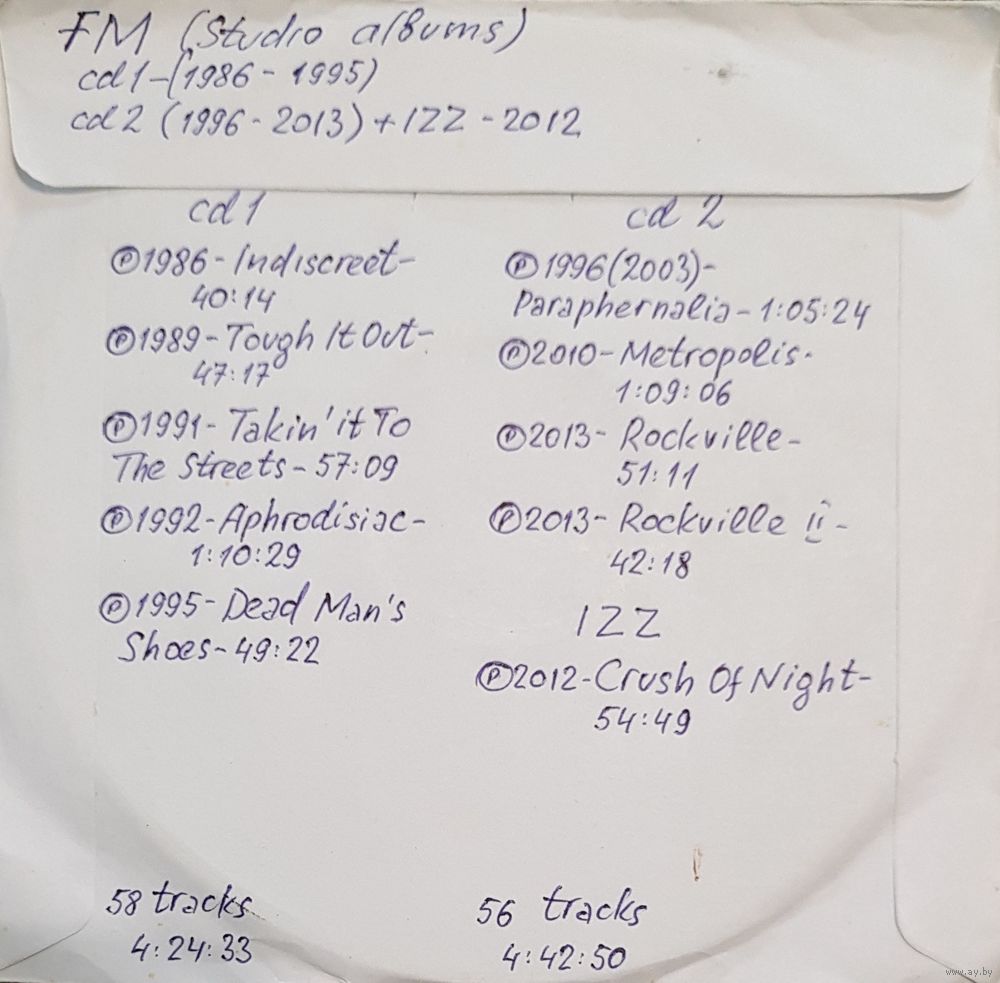 FM (Studio albums)
cd1-(1986 - 1995)
cd2 (1996 - 2013) + IZZ - 2012
cd 1
Ⓟ1986- Indiscreet-
40:14
Ⓟ1989- Tough It Out-
47:17
Ⓟ1991- Takin' it To
The Streets- 57:09
Ⓟ1992- Aphrodisiac-
1:10:29
Ⓟ1995- Dead Man's
Shoes- 49:22
58 tracks
4:24:33
cd 2
Ⓟ1996(2003)-
Paraphernalia- 1:05:24
Ⓟ2010- Metropolis-
1:09:06
Ⓟ2013- Rockville-
51:11
Ⓟ2013- Rockville II-
42:18
IZZ
Ⓟ2012- Crush Of Night-
54:49
56 tracks
4:42:50
www.ay.by